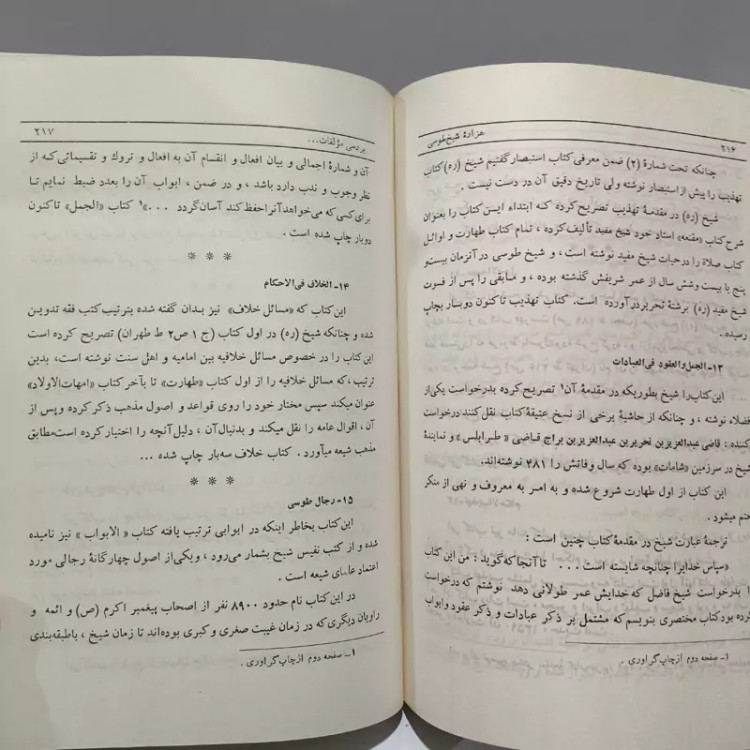 ۲۱۶
هزارهٔ شیخ طوسی
چنانکه تحت شمارهٔ (۲) ضمن معرفی کتاب استبصار گفتیم شیخ (ره) کتاب
تهذیب را پیش از استبصار نوشته ولی تاریخ دقیق آن در دست نیست .
شیخ (ره) در مقدمهٔ تهذیب تصریح کرده که ابتداء این کتاب را بعنوان
شرح کتاب «مقنعه» استاد خود شیخ مفید تألیف کرده ، تمام کتاب طهارت و اوائل
کتاب صلاة را در حیات شیخ مفید نوشته است ، و شیخ طوسی در آنزمان بیست و
پنج یا بیست و شش سال از عمر شریفش گذشته بوده ، و مابقی را پس از فوت
شیخ مفید (ره) برشتهٔ تحریر درآورده است. کتاب تهذیب تاکنون دوبار بچاپ
رسیده.
۱۳- الجمل والعقود فی العبادات
این کتاب را شیخ بطوریکه در مقدمهٔ آن۱ تصریح کرده بدرخواست یکی از
فضلاء نوشته ، و چنانکه از حاشیهٔ برخی از نسخ عتیقهٔ کتاب نقل کنند درخواست
کننده : قاضی عبدالعزیز بن تحریر بن عبدالعزیز بن براج قاضی « طرابلس » و نمایندهٔ
شیخ در سرزمین «شامات» بوده که سال وفاتش را ۴۸۱ نوشته‌اند.
این کتاب از اول طهارت شروع شده و به امر به معروف و نهی از منکر
ختم میشود .
ترجمهٔ عبارت شیخ در مقدمهٔ کتاب چنین است :
«سپاس خدایرا چنانچه شایسته است . . . تا آنجا که گوید : من این کتاب
را بدرخواست شیخ فاضل که خدایش عمر طولانی دهد نوشتم که درخواست
کرده بود کتاب مختصری بنویسم که مشتمل بر ذکر عبادات و ذکر عقود و ابواب
۱- صفحه دوم از چاپ گراوری .
بررسی مؤلفات...
۲۱۷
آن و شمارهٔ اجمالی و بیان افعال و انقسام آن به افعال و تروك و تقسیماتی که از
نظر وجوب و ندب دارد باشد ، و در ضمن ، ابواب آن را بعدد ضبط نمایم تا
برای کسی که می‌خواهد آنرا حفظ کند آسان گردد . . .»۱ کتاب «الجمل» تاکنون
دوبار چاپ شده است .
* * *
۱۴- الخلاف فی الاحکام
این کتاب که «مسائل خلاف» نیز بدان گفته شده بترتیب کتب فقه تدوین
شده و چنانکه شیخ (ره) در اول کتاب (ج ۱ ص ۲ ط طهران) تصریح کرده است
این کتاب را در خصوص مسائل خلافیه بین امامیه و اهل سنت نوشته است، بدین
ترتیب، که مسائل خلافیه را از اول کتاب «طهارت» تا بآخر کتاب «امهات الاولاد»
عنوان میکند سپس مختار خود را روی قواعد و اصول مذهب ذکر کرده و پس از
آن ، اقوال عامه را نقل میکند و بدنبال آن ، دلیل آنچه را اختیار کرده است مطابق
مذهب شیعه میآورد . کتاب خلاف سه‌بار چاپ شده ...
* * *
۱۵- رجال طوسی
این کتاب بخاطر اینکه در ابوابی ترتیب یافته کتاب « الابواب » نیز نامیده
شده و از کتب نفیس شیخ بشمار می‌رود ، و یکی از اصول چهارگانهٔ رجالی مورد
اعتماد علمای شیعه است .
در این کتاب نام حدود ۸۹۰۰ نفر از اصحاب پیغمبر اکرم (ص) و ائمه و
راویان دیگری که در زمان غیبت صغری و کبری بوده‌اند تا زمان شیخ ، با طبقه‌بندی
۱- صفحه دوم از چاپ گراوری .